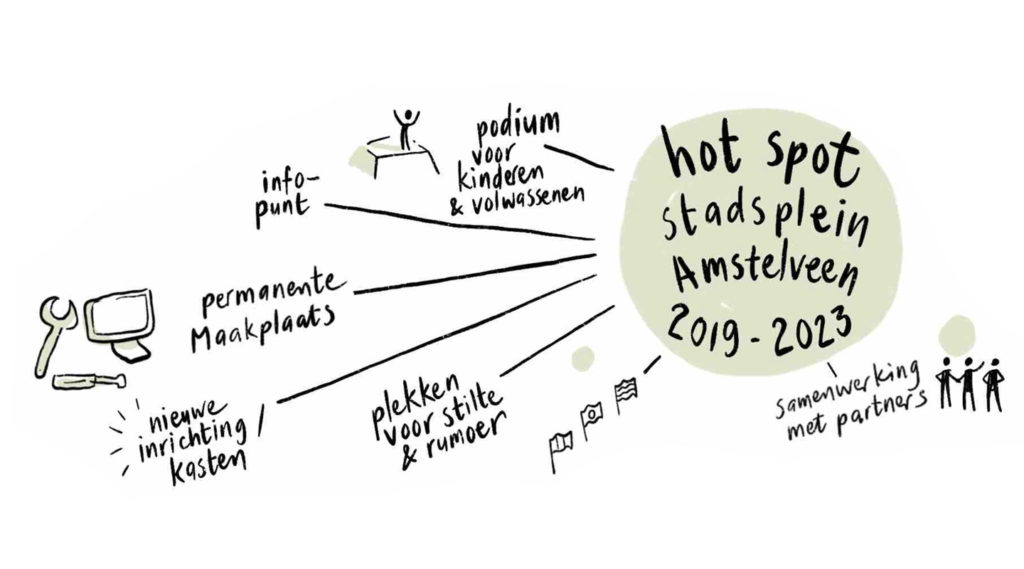 hot spot
stadsplein
Amstelveen
2019-2023
podium
voor
kinderen
& volwassenen
info-
punt
permanente
Maakplaats
nieuwe
inrichting /
kasten
plekken
voor stilte
& rumoer
samenwerking
met partners